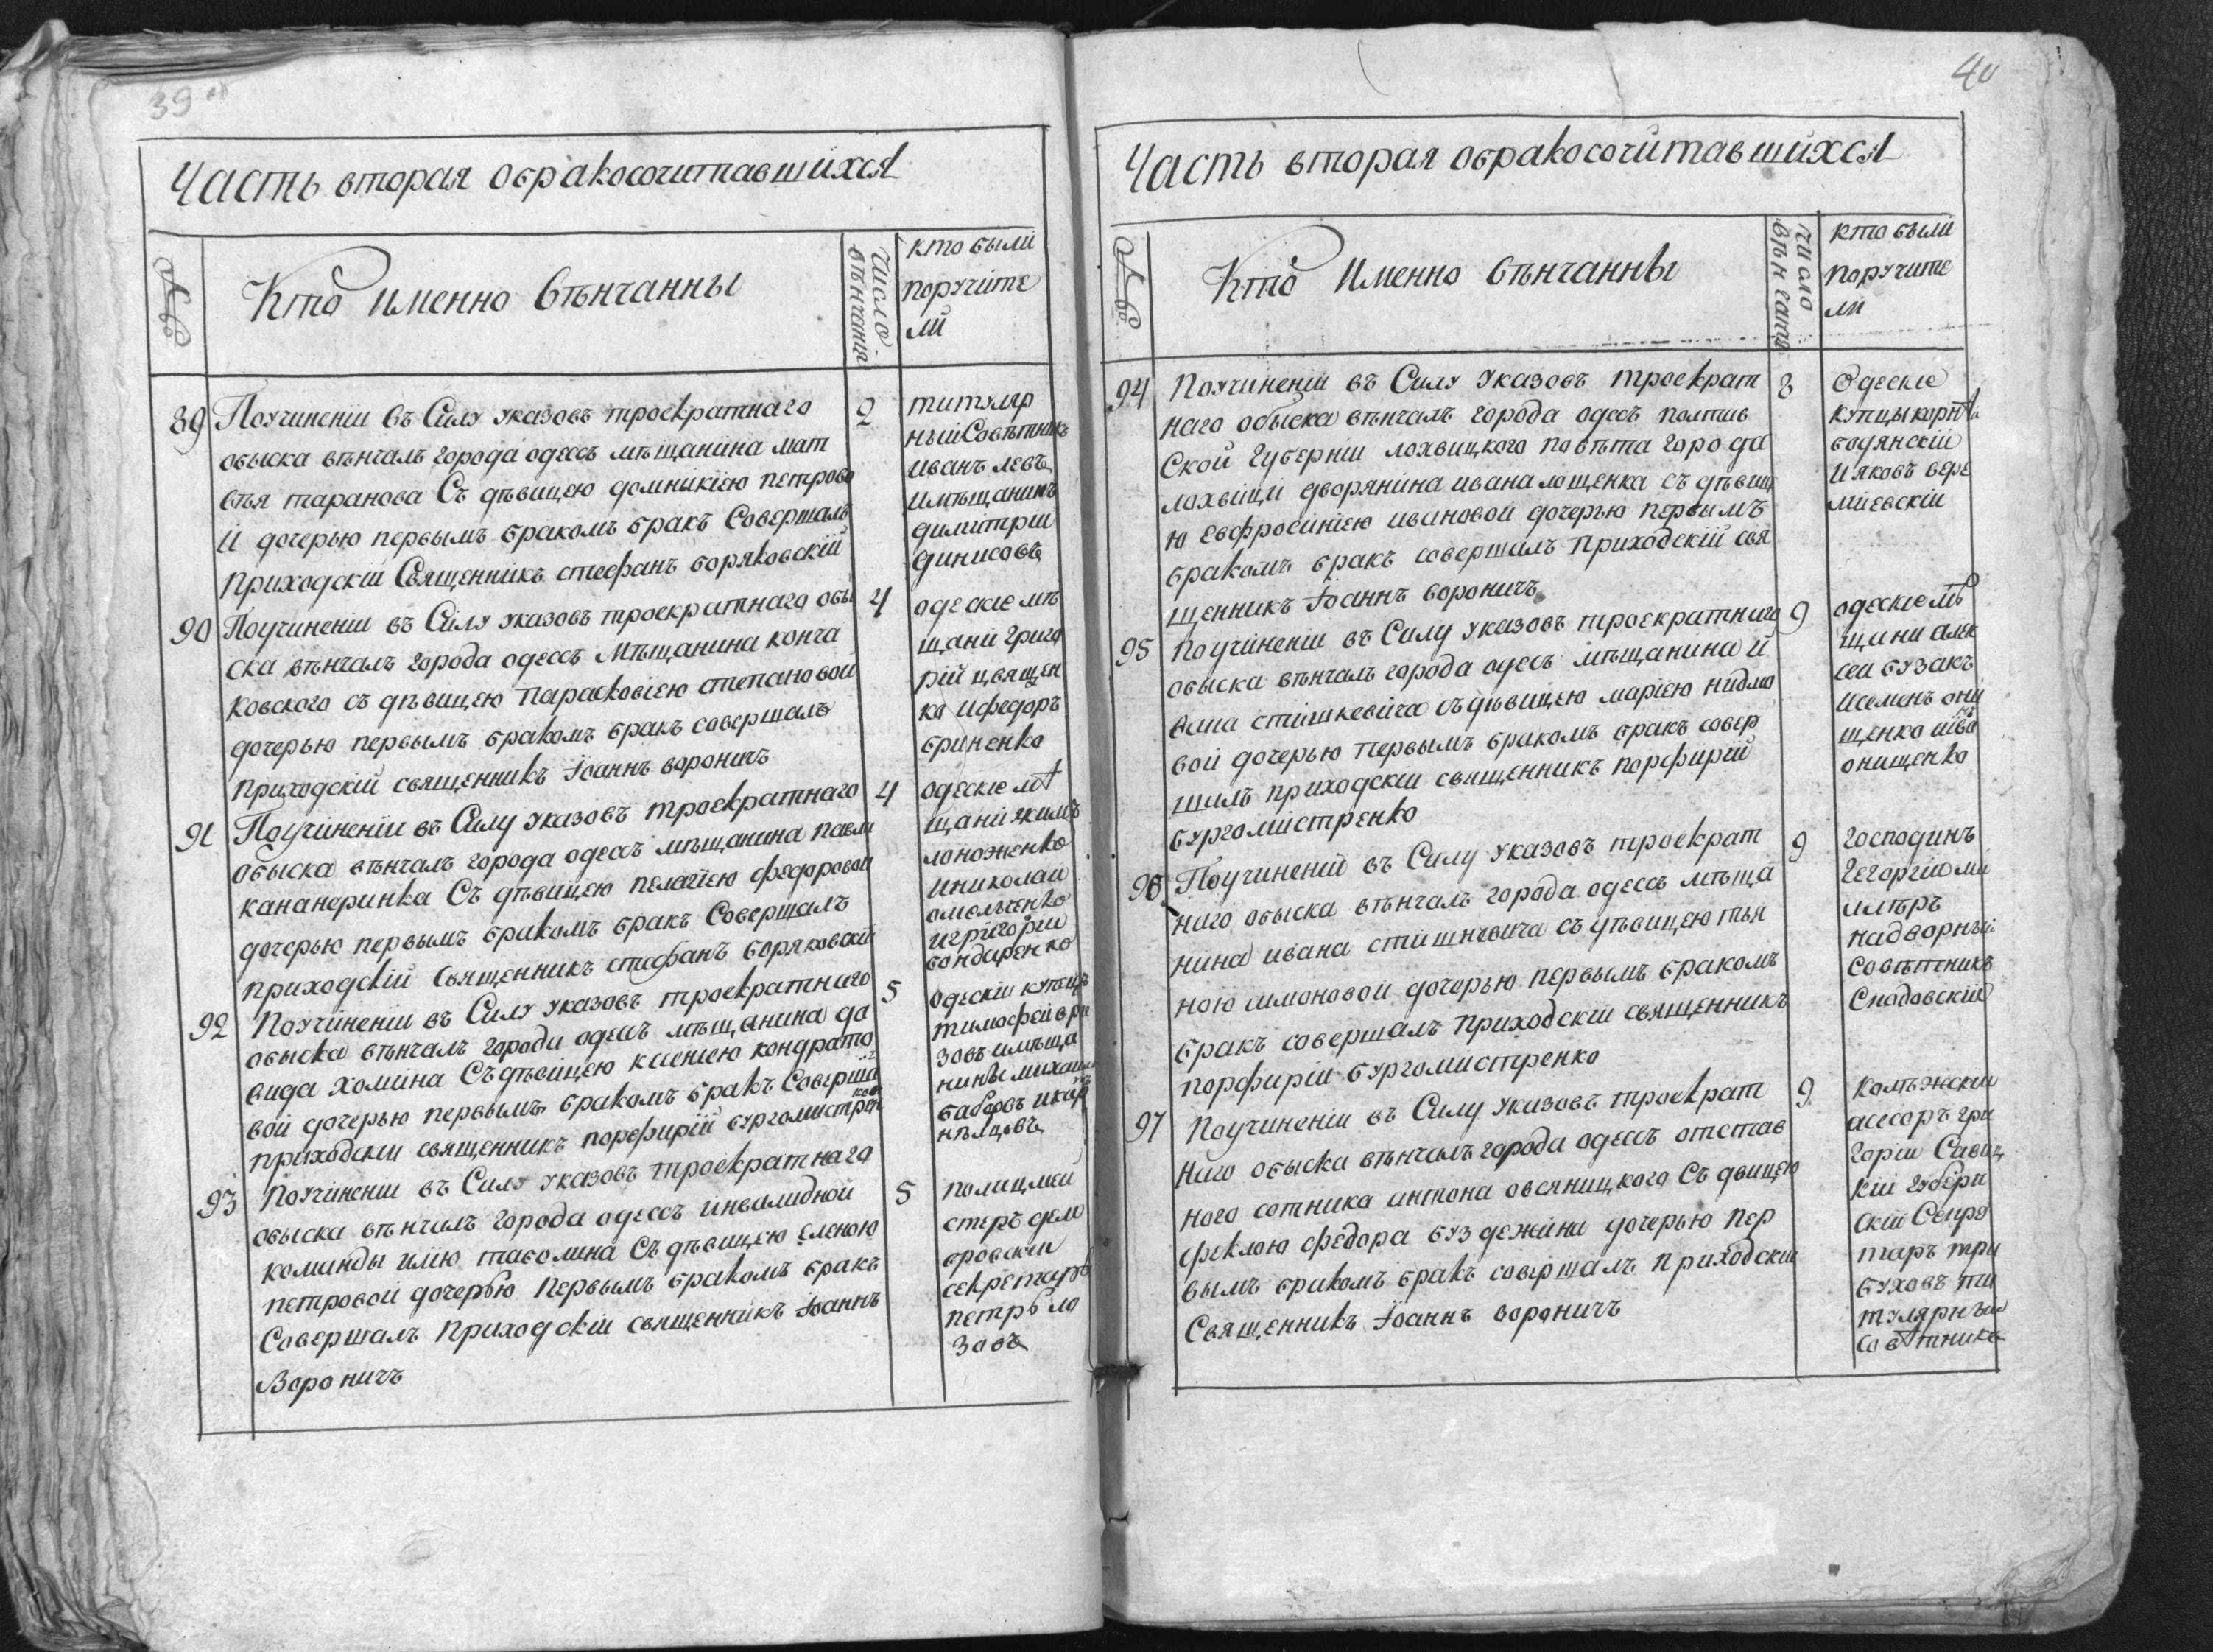 39
Часть вторая обракосочитавшихся
№
Кто именно Вѣнчанны
Число вѣнчанія
кто были
поручите
ли
89
Поучиненіи въ Силу указовъ троекратнаго
обыска вѣнчалъ города одессъ мѣщанина мат
вѣя таранова Съ дѣвицею домникіею петрово
й дочерью первымъ бракомъ бракъ Совершалъ
Приходскій Священникъ стефанъ боряковскій
2
титуляр
ный Совѣтникъ
иванъ левъ
имѣщанинъ
димитрій
динисовъ
90
Поучиненіи въ Силу указовъ троекратнаго обы
ска вѣнчалъ города одессъ Мѣщанина конча
ковского съ дѣвицею Парасковіею степановой
дочерью первымъ бракомъ бракъ совершалъ
Приходскій священникъ Іоаннъ вороничъ
4
одескіе мѣ
щани григо
рій цвящен
ко ифедоръ
гриненко
91
Поучиненіи въ Силу указовъ троекратнаго
обыска вѣнчалъ города одессъ мѣщанина павла
кананеринка Съ дѣвицею пелагіею федоровой
дочерью первымъ бракомъ бракъ Совершалъ
приходскій Священникъ стефанъ боряковскій
4
одескіе мѣ
щани якимъ
лоноженко
иниколай
омельченко
игригорій
бондаренко
92
Поучиненіи въ Силу указовъ троекратнаго
обыска вѣнчалъ города одессъ мѣщанина да
вида хомина Съдѣвицею ксеніею кондрато
вой дочерью первымъ бракомъ бракъ Соверша
приходскій священникъ порфирій бургомистренко
5
Одескій купецъ
тимофей
зовъ имѣща
нины михаилъ
бабовъ икар
нѣлцовъ
93
Поучиненіи въ Силу указовъ троекратнаго
обыска вѣнчалъ города одессъ инвалидной
команды илію таволина Съ дѣвицею еленою
петровой дочерью первымъ бракомъ бракъ
Совершалъ Приходскій священникъ Іоаннъ
Вороничъ
5
полицмей
стеръ дем
бровскій
секретарь
петръ ло
зовъ
40
Часть вторая обракосочитавшихся
№
Кто Именно вѣнчанны
Число вѣнчанія
кто были
поручите
ли
94
Поучиненіи въ Силу Указовъ троекрат
наго обыска вѣнчалъ города одессъ полтав
Ской Губерніи лохвицкого повѣта города
лохвици дворянина ивана лощенка съ дѣвице
ю Евфросиніею ивановой дочерью первымъ
бракомъ бракъ совершилъ Приходскій свя
щенникъ Іоаннъ вороничъ
8
Одескіе
купцы корнѣй
бодянскій
и яковъ вере
міевскій
95
Поучиненіи въ Силу указовъ троекратнаго
обыска вѣнчалъ города одессъ мѣщанина и
вана стишкевича съ дѣвицею маріею
вой дочерью первымъ бракомъ бракъ совер
шилъ приходскій священникъ порфирій
бургомистренко
9
одескіе мѣ
щани алек
сей бузакъ
исеменъ они
щенко ива
онищенко
96
Поучиненіи въ Силу указовъ троекрат
наго обыска вѣнчалъ города одессъ мѣща
нина ивана съ дѣвицею тья
ною дочерью первымъ бракомъ
бракъ совершалъ Приходскій священникъ
порфирій бургомистренко
9
господинъ
Гегоргій ми
илѣръ
надворный
совѣтникъ
Снадовскій
97
Поучиненіи въ Силу указовъ троекрат
наго обыска вѣнчалъ города одессъ отстав
ного сотника антона овсяницкого Съ двицею
феклою федора буздежина дочерью пер
вымъ бракомъ бракъ совершалъ Приходскій
Священникъ Іоаннъ вороничъ
9
колѣжскій
асесоръ гри
горій Савиц
кій губерн
скій Секре
таръ три
буховъ ти
тулярный
совѣтникъ